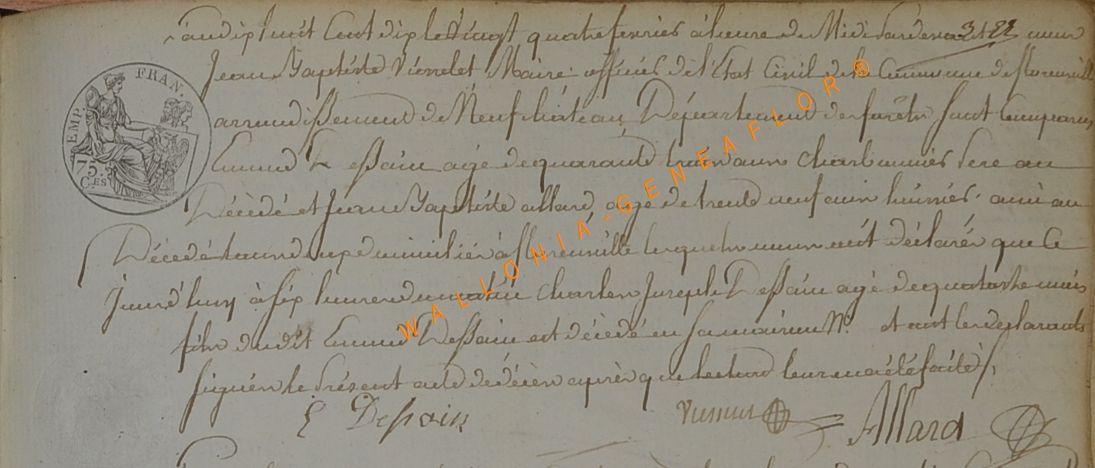 L'an dix huit Cent dix le vingt quatre fevrier à lheure de Midi Pardevant nous 3182
Jean Baptiste Vienelet Maire officier de l'Etat Civil de la Commune de florenville
arrondissement de Neufchateau Département des forêts sont Comparus
Edmond Dessain agé de quarante trois ans charbonnier Pere au
Décédé et Jean Baptiste allard agé de trente neuf ans huissier ami au
Décédé tous deux domiciliés à florenville lesquels nous ont déclarés que Ce
jourd'huy à six heures du matin Charles Joseph Dessain agé de quatorze mois
fils dudit Edmond Dessain est décédé en sa maison N. et ont les déclarants
signés le Présent acte de décès après que lecture leur en a été faite /.
E Dessain
Allard
EMP. FRAN.
75.
C.ES
WALLONIA-GENEAFLOR®